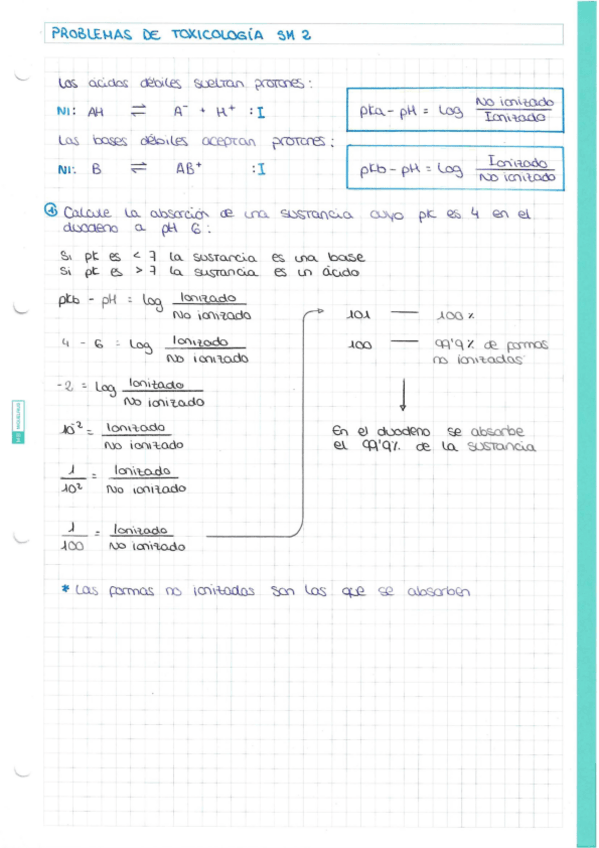 PROBLEMAS DE TOXICOLOGÍA SM 2
Los ácidos débiles sueltan protones:
NI: AH ⇌ A⁻ + H⁺ : I
pKa - pH = Log No ionizado / Ionizado
Las bases débiles aceptan protones:
NI: B ⇌ AB⁺ : I
pKb - pH = Log Ionizado / No ionizado
① Calcule la absorción de una sustancia cuyo pK es 4 en el
duodeno a pH 6:
Si pK es < 7 la sustancia es una base
Si pK es > 7 la sustancia es un ácido
pKb - pH = log Ionizado / No ionizado
4 - 6 = Log Ionizado / No ionizado
-2 = Log Ionizado / No ionizado
10⁻² = Ionizado / No ionizado
1 / 10² = Ionizado / No ionizado
1 / 100 = Ionizado / No ionizado
101 — 100%
100 — 99'9% de formas
no ionizadas
En el duodeno se absorbe
el 99'9% de la sustancia
* Las formas no ionizadas son las que se absorben